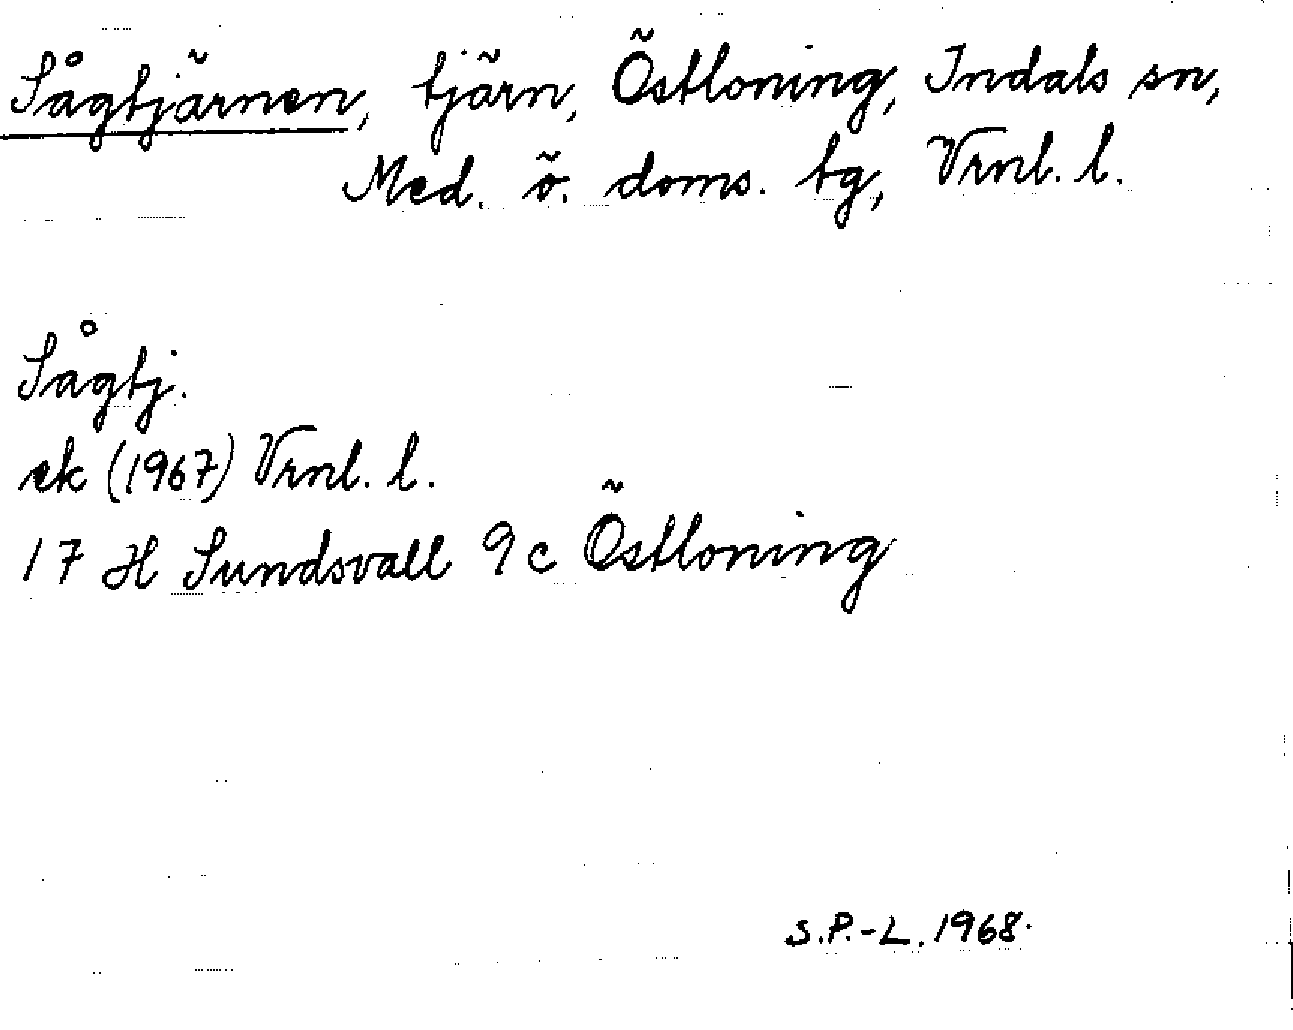 Sågtjärnen, tjärn, Östloning, Indals sn,
Med. ö. doms. tg, Vrnl. l.
Sågtj.
ek (1967) Vrnl. l.
17 H Sundsvall 9 c Östloning
S.P.-L. 1968.